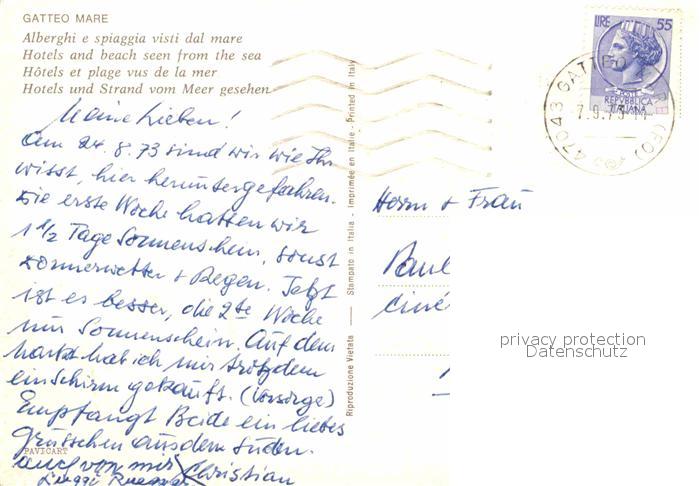 GATTEO MARE
Alberghi e spiaggia visti dal mare
Hotels and beach seen from the sea
Hôtels et plage vus de la mer
Hotels und Strand vom Meer gesehen
Meine Lieben!
Am 24.8.73 sind wir wie Ihr
wisst, hier heruntergefahren.
Die erste Woche hatten wir
1 1/2 Tage Sonnenschein, sonst
Donnerwetter + Regen. Jetzt
ist es besser, die 2te Woche
nur Sonnenschein. Auf dem
Markt hab ich mir trotzdem
ein Schirm gekauft. (Vorsorge)
Empfangt Beide ein liebes
Grüsschen aus dem Süden.
PAVICART
auch von mir Christian
Riproduzione Vietata — Stampato in Italia - Imprimée en Italie - Printed in Italy
LIRE 55
POSTE
REPVBBLICA
ITALIANA
47043 GATTEO (FO)
7.9.73
Herrn + Frau
Paul
ciné
privacy protection
Datenschutz